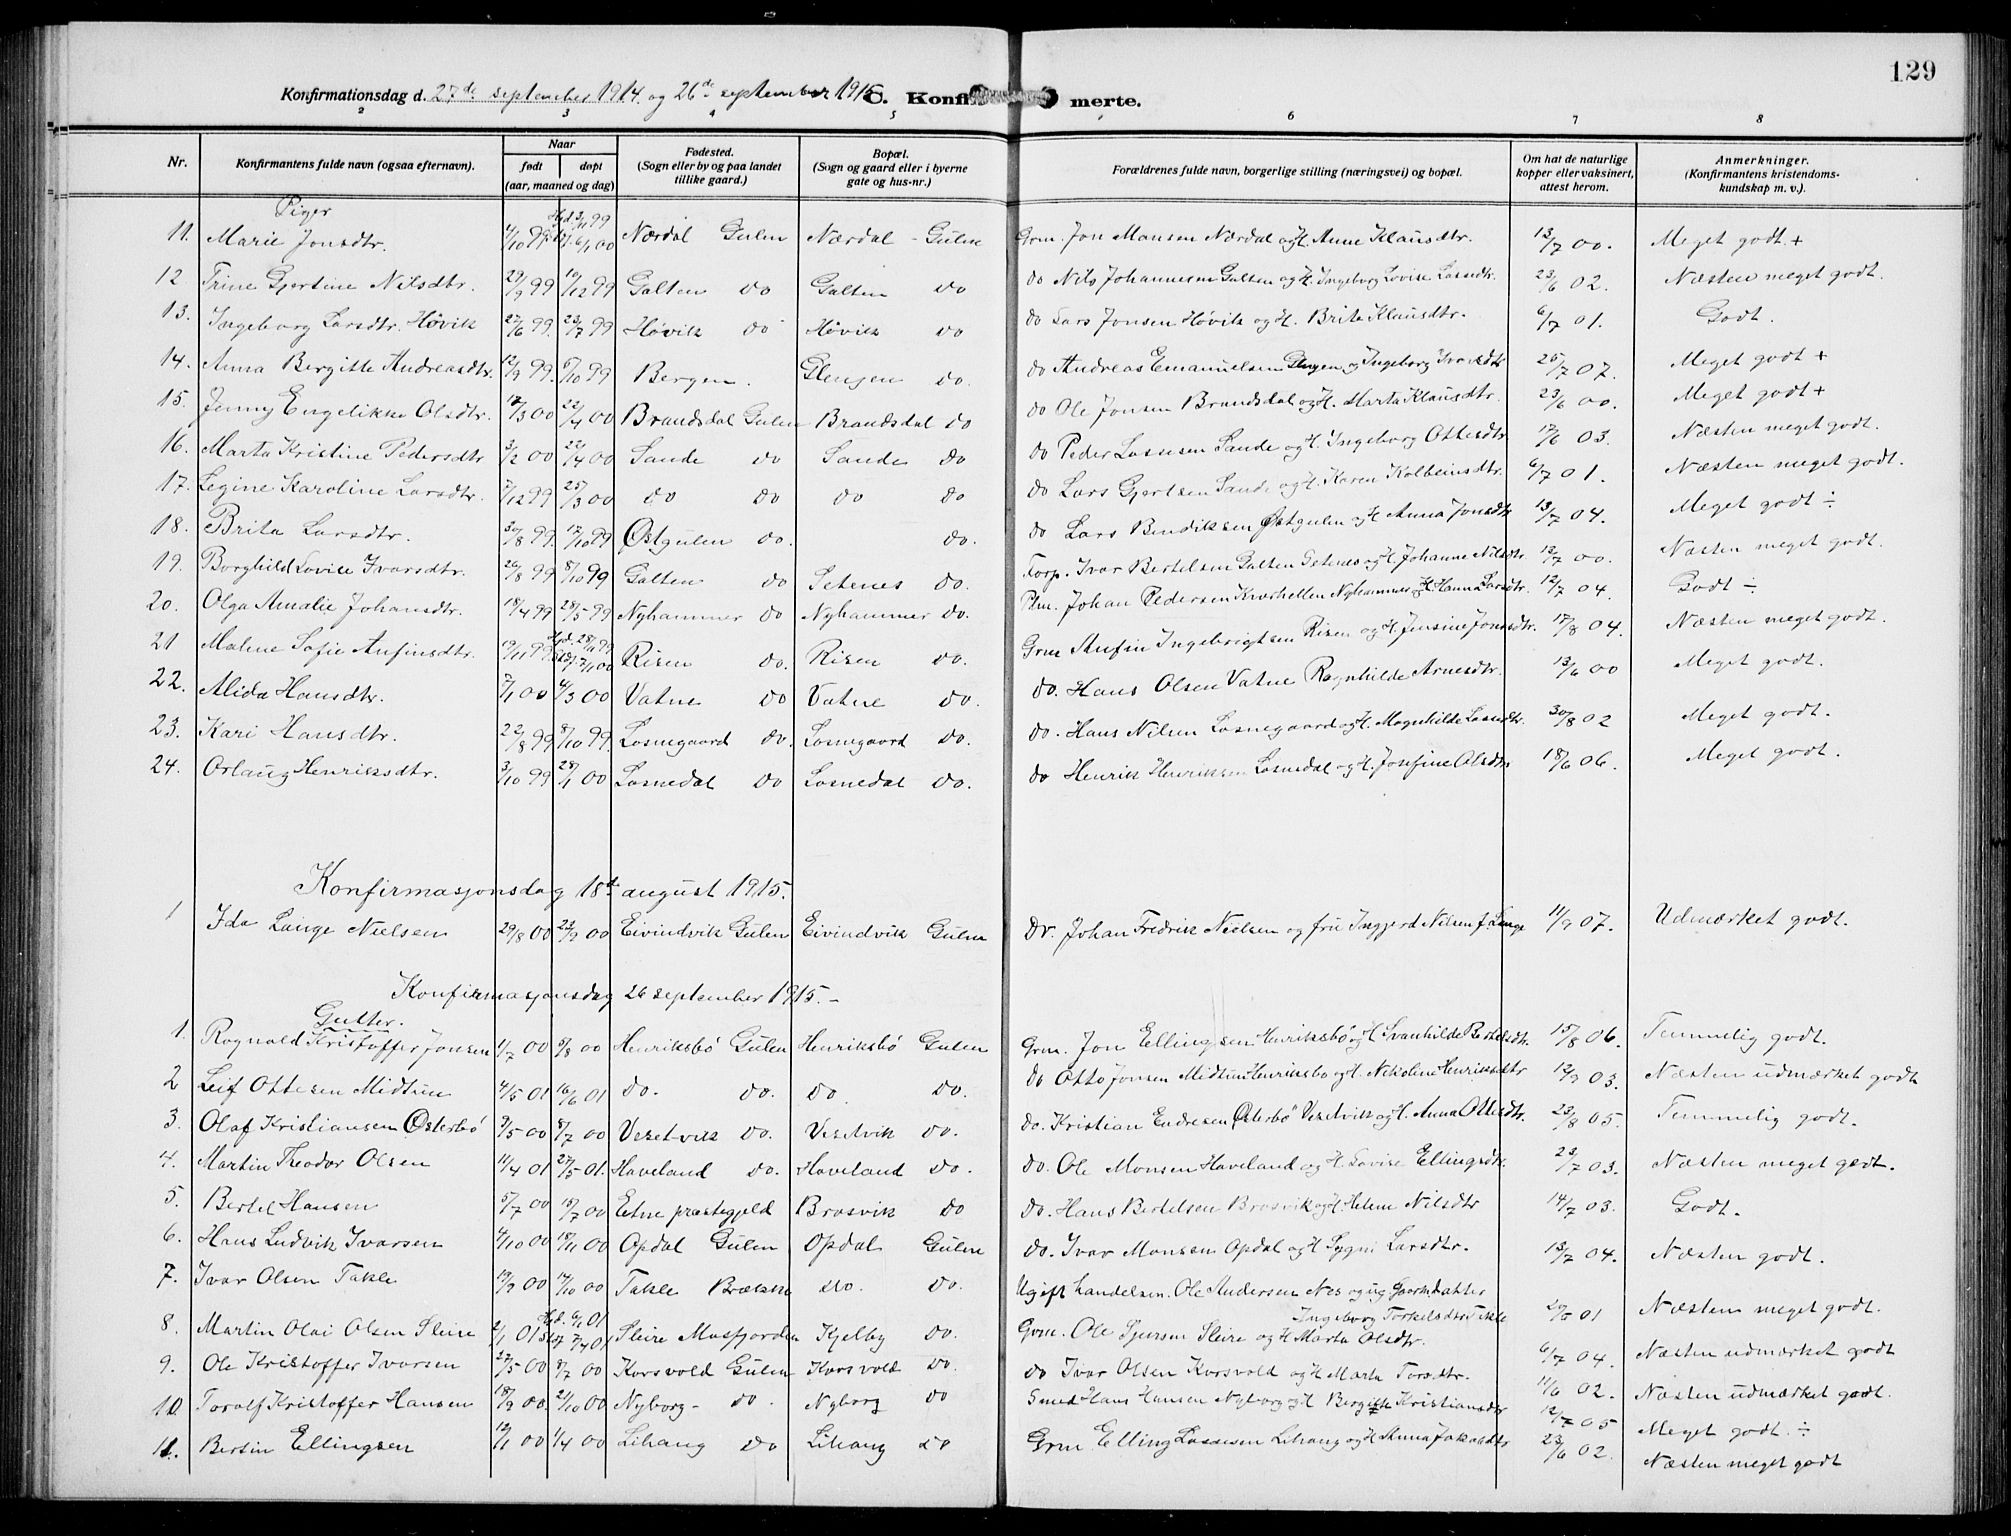 129
Konfirmationsdag d. 27de september 1914 og 26de september 1915 C. Konfirmerte.
2 3 4 5 6 7 8
Nr. Konfirmantens fulde navn (ogsaa efternavn). Naar født døpt (aar, maaned og dag) Fødested. (Sogn eller by og paa landet tillike gaard.) Bopæl. (Sogn og gaard eller i byerne gate og hus-nr.) Forældrenes fulde navn, borgerlige stilling (næringsvei) og bopæl. Om hat de naturlige kopper eller vaksinert, attest herom. Anmerkninger. (Konfirmantens kristendomskundskap m. v.).
Piger
11. Marie Jonsdtr. 4/10 99 Hjd. 3/11 99 6/1 00 Nærdal Gulen Nærdal - Gulen Grm. Jon Monsen Nærdal og H. Anne Klausdtr. 13/7 00. Meget godt +
12 Trine Gjertine Nilsdtr. 29/9 99 10/12 99 Galten do Galten do do Nils Johannesen Galten og H. Ingeborg Lovise Lassedtr. 23/6 02. Næsten meget godt.
13. Ingeborg Larsdtr. Høvik 27/6 99. 23/7 99 Høvik do Høvik do do Lars Jonsen Høvik og H. Brite Klausdtr. 6/7 01. Godt.
14. Anna Bergitte Andreasdtr. 12/9 99. 8/10 99 Bergen. Glenjen do. do Andreas Emanuelsen Glenjen og Ingeborg Ivarsdtr 25/7 07. Meget godt +
15. Jenny Engelikke Olsdtr. 12/3 00 22/4 00 Brandsdal Gulen Brandsdal do do Ole Jonsen Brandsdal og H. Marta Klausdtr. 23/6 00. Meget godt +
16. Marta Kristine Pedersdtr 3/2 00 22/4 00 Sande do Sande do do Peder Lassesen Sande og H. Ingeborg Ottesdtr 17/6 03. Næsten meget godt.
17. Legine Karoline Larsdtr. 7/12 99 25/3 00 do do do do do Lars Gjertsen Sande og H. Karen Kolbeinsdtr. 6/7 01. Næsten meget godt.
18. Brita Larsdtr. 30/8 99. 17/10 99 Østgulen do. do. do Lars Bendiksen Østgulen og H Anna Jonsdtr 13/7 04. Meget godt ÷
19. Borghild Lovise Ivarsdtr. 26/8 99 8/10 99 Galten do Setenes do. Torp. Ivar Bertelsen Galten Setenes og H. Johanne Nilsdtr. 13/7 00. Næsten meget godt.
20. Olga Amalie Johansdtr. 18/4 99 28/5 99 Nyhammer do Nyhammer do. Plm. Johan Pedersen Kvarhellen Nyhammer og H. Hanna Larsdtr. 12/7 04. Godt ÷
21 Malene Sofie Anfinsdtr. 19/11 99. Hjd. 28/11 99 Stdf. 7/1 00 Risen do. Risen do. Grm Anfin Ingebrigtsen Risen og H. Jensine Jonsdtr. 17/8 04. Næsten meget godt.
22. Alida Hansdtr. 7/1 00 4/3 00 Vatne do Vatne do. do. Hans Olsen Vatne Ragnhilde Arnesdtr. 13/6 00 Meget godt.
23. Kari Hansdtr. 22/8 99 8/10 99. Losnegaard do. Losnegaard do. do. Hans Nilsen Losnegaard og H. Magnhilde Lassedtr. 30/8 02 Meget godt.
24. Orlaug Henriksdtr. 3/10 99 28/1 00 Losnedal do Losnedal do. do Henrik Henriksen Losnedal og H. Josefine Olsdtr 18/6 06. Meget godt.
Konfirmasjonsdag 18de august 1915.
1 Ida Lange Nielsen 29/8 00 23/9 00 Eivindvik Gulen Eivindvik Gulen Dr. Johan Fredrik Nielsen og fru Ingjerd Nilsen f. Lange 11/9 07. Udmærket godt.
Konfirmasjonsdag 26 september 1915. -
Gutter.
1. Ragnvald Kristoffer Jonsen 1/7 00 9/8 00 Henriksbø Gulen Henriksbø Gulen Grm. Jon Ellingsen Henriksbø og H Svanhilde Bertelsdtr. 15/8 06. Temmelig godt.
2 Leif Ottesen Midtun 4/5 01 16/6 01 do. do. do. do. do Otto Jonsen Midtun Henriksbø og H. Nikoline Henriksdtr 12/9 03. Næsten udmærket godt
3. Olaf Kristiansen Østerbø 9/5 00 8/7 00 Vesetvik do. Vesetvik do. do. Kristian Endresen Østerbø Vesetvik og H. Anna Ottesdtr. 23/8 05. Temmelig godt.
4. Martin Theodor Olsen 11/4 01 27/5 01. Haveland do. Haveland do. do. Ole Monsen Haveland og H. Lovise Ellingsdtr. 23/7 03. Næsten meget godt.
5. Bertel Hansen 5/7 00 15/7 00 Etne prestegjeld Brosvik do do. Hans Bertelsen Brosvik og H Helene Nilsdtr 14/7 03. Godt.
6. Hans Ludvik Ivarsen 4/10 00 18/11 00 Opdal Gulen Opdal Gulen do. Ivar Monsen Opdal og H Sygni Larsdtr. 13/7 04. Næsten godt.
7. Ivar Olsen Takle 19/9 00 14/10 00 Takle Brekke do. do. Ugift handelsm. Ole Andersen Nes og ug. Gaardm.datter
Ingeborg Torkelsdtr Takle 20/6 01 Næsten meget godt.
8. Martin Olai Olsen Sleire 2/1 01 Hjd. 6/1 01 Stdf 7/4 01 Sleire Masfjorden Kjelby do. Grm. Ole Sjursen Sleire og H Marta Olsdtr. 6/7 04. Næsten udmærket godt
9. Ole Kristoffer Ivarsen 27/5 00 8/7 00 Korsvold Gulen Korsvold do. do Ivar Olsen Korsvold og H Marta Torsdtr. 11/6 02. Næsten udmærket godt.
10. Toralf Kristoffer Hansen 18/9 00. 21/10 00 Nyborg - do. Nyborg do Smed Hans Hansen Nyborg og H Bergitte Kristiansdtr 12/7 05 Meget godt. ÷
11. Bertin Ellingsen 12/1 00 1/4 00 Lihaug do Lihaug do Grm Elling Lassesen Lihaug og H Anna Jakobdtr 23/6 02. Næsten meget godt